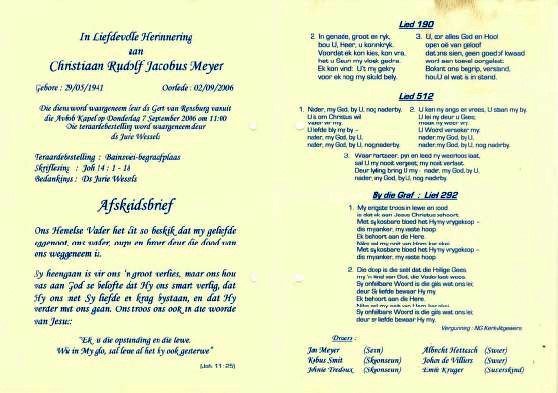 In Liefdevolle Herinnering
aan
Christiaan Rudolf Jacobus Meyer
Gebore : 29/05/1941 Oorlede : 02/09/2006
Die diens word waargeneem deur ds Gert van Rensburg vanuit
die Avbob Kapel op Donderdag 7 September 2006 om 11:00
Die teraardebestelling word waargeneem deur
ds Jurie Wessels
Teraardebestelling : Bainsvlei-begraafplaas
Skriflesing : Joh 14 : 1 - 14
Bedankings : Ds Jurie Wessels
Afskeidsbrief
Ons Hemelse Vader het dit so beskik dat my geliefde
eggenoot, ons vader, oupa en broer deur die dood van
ons weggeneem is.
Sy heengaan is vir ons 'n groot verlies, maar ons hou
vas aan God se belofte dat Hy ons smart verlig, dat
Hy ons met Sy liefde en krag bystaan, en dat Hy
verder met ons gaan. Ons troos ons ook in die woorde
van Jesus:
"Ek is die opstanding en die lewe.
Wie in My glo, sal lewe al het hy ook gesterwe"
(Joh. 11 : 25)
Lied 190
2. In genade, groot en ryk,
bou U, Heer, u koninkryk.
Voordat ek kon kies, kon vra,
het u Seun my vloek gedra.
Ek kon vind: U't my gekry
voor ek nog my skuld bely.
3. U, oor alles God en Hoof
open oë van geloof
dat ons sien, geen goed of kwaad
word aan toeval oorgelaat.
Bo kant ons begrip, verstand,
hou U al wat is in stand.
Lied 512
1. Nader, my God, by U, nog naderby.
U is om Christus wil
vader vir my.
U liefde bly my by –
nader, my God, by U,
nader, my God, by U, nog naderby.
2. U ken my angs en vrees, U staan my by.
U lei my deur u Gees;
maak my weer vry.
U Woord verseker my:
nader, my God, by U,
nader, my God, by U, nog naderby.
3. Waar hartseer, pyn en leed my weerloos laat,
sal U my nooit vergeet, my nooit verlaat.
Deur lyding bring U my - nader, my God, by U,
nader, my God, by U, nog naderby.
By die Graf : Lied 292
1. My enigste troos in lewe en dood
is dat ek aan Jesus Christus behoort.
Met sy kosbare bloed het Hy my vrygekoop -
dis my anker, my vaste hoop
Ek behoort aan die Here.
Niks sal my ooit van Hom kan skei.
Met sy kosbare bloed het Hy my vrygekoop -
dis my anker, my vaste hoop
2. Die doop is die seël dat die Heilige Gees
my 'n kind van God, die Vader laat wees.
Sy onfeilbare Woord is die gids wat ons lei;
deur Sy liefde bewaar Hy my.
Ek behoort aan die Here.
Niks sal my ooit van Hom kan skei.
Sy onfeilbare Woord is die gids wat ons lei;
deur sy liefde bewaar Hy my.
Vergunning : NG Kerkuitgewers
Draers :
Jan Meyer (Seun) Albrecht Hettasch (Swaer)
Kobus Smit (Skoonseun) Johan de Villiers (Swaer)
Johnie Tredoux (Skoonseun) Emile Kruger (Susterskind)